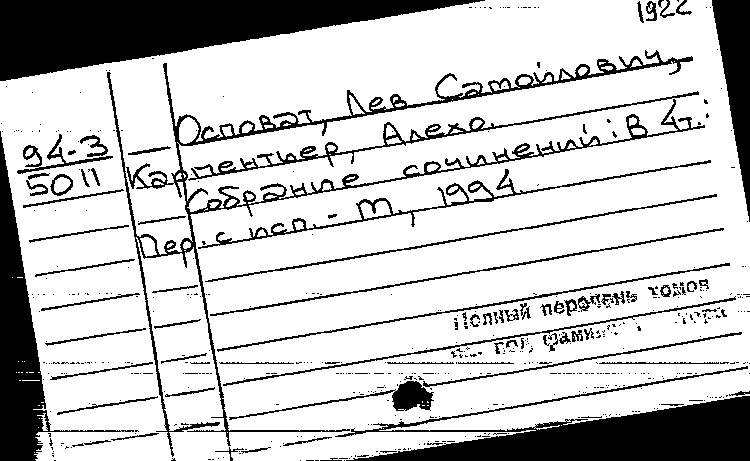 1922
Осповат, Лев Самойлович,
94-3
5011
Карпентьер, Алехо.
Собрание сочинений: В 4т.:
Пер. с исп. - М., 1994.
Полный перечень томов
под